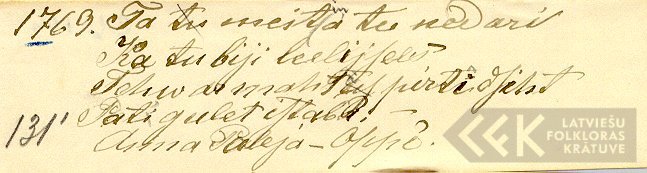 1769. Ta tu meit(iņ) tu nedari
Kā tu biji leelijsēs
Tehw a maht pirtî dsiht
Pati gulet istabâ.
131¹ Anna Paleja - Oppē.
LATVIEŠU
FOLKLORAS
KRĀTUVE